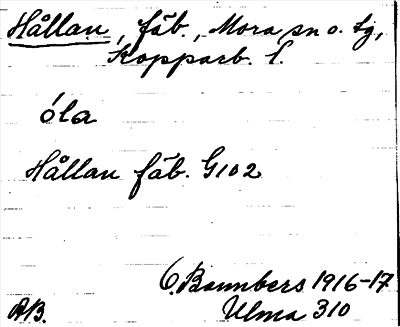 Hållan, fäb., Mora sn o. tg,
Kopparb. l.
óla
Hållan fäb. G102
O. Bannbers 1916-17
AB. Ulma 310